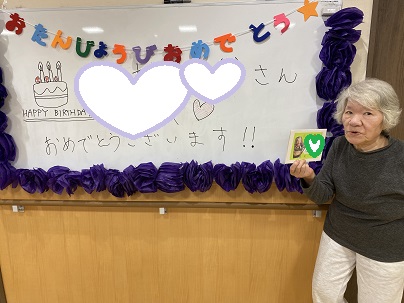 おたんじょうびおめでとう
さん
HAPPY BIRTHDAY
おめでとうございます!!